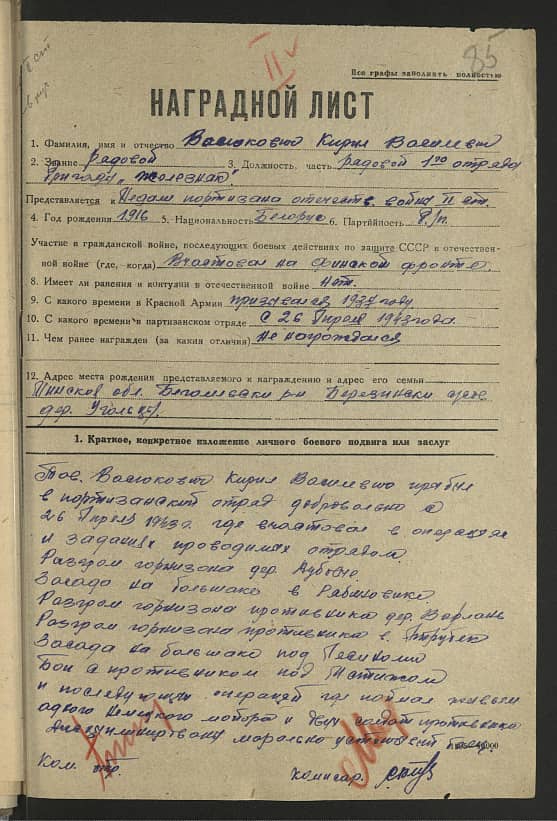 85
II
Все графы заполнять полностью
НАГРАДНОЙ ЛИСТ
1. Фамилия, имя и отчество Васюкович Кирил Васильевич
2. Звание рядовой 3. Должность, часть рядовой 1го отряда
бригады „Железняк"
Представляется к Медали партизана отечеств. войны II ст.
4. Год рождения 1916 5. Национальность Белорус 6. Партийность б/п.
Участие в гражданской войне, последующих боевых действиях по защите СССР и отечествен-
ной войне (где, когда) Участвовал на Финском фронте.
8. Имеет ли ранения и контузии в отечественной войне Нет.
9. С какого времени в Красной Армии призывался 1937 году
10. С какого времени в партизанском отряде С 26 Апреля 1943 года.
11. Чем ранее награжден (за какия отличия) Не награждался
12. Адрес места рождения представляемого к награждению и адрес его семьи
Минской обл. Бегомльски р-н Березински
дер. Угольцы.
1. Краткое, конкретное изложение личного боевого подвига или заслуг
Тов. Васюкович Кирил Васильевич прибыл
в партизанский отряд добровольно с
26 Апреля 1943 г. где участвовал в операциях
и заданиях проводимых отрядом
Разгром гарнизона дер.
Засада на большаке в
Разгром гарнизона противника дер.
Разгром гарнизона противника в
Засада на большаке под
Бои с противником под
и последующих операций где поймал живьем
одного Немецкого майора и двух солдат противника
Дисциплинирован морально устойчив
Ком. отр. комисар.